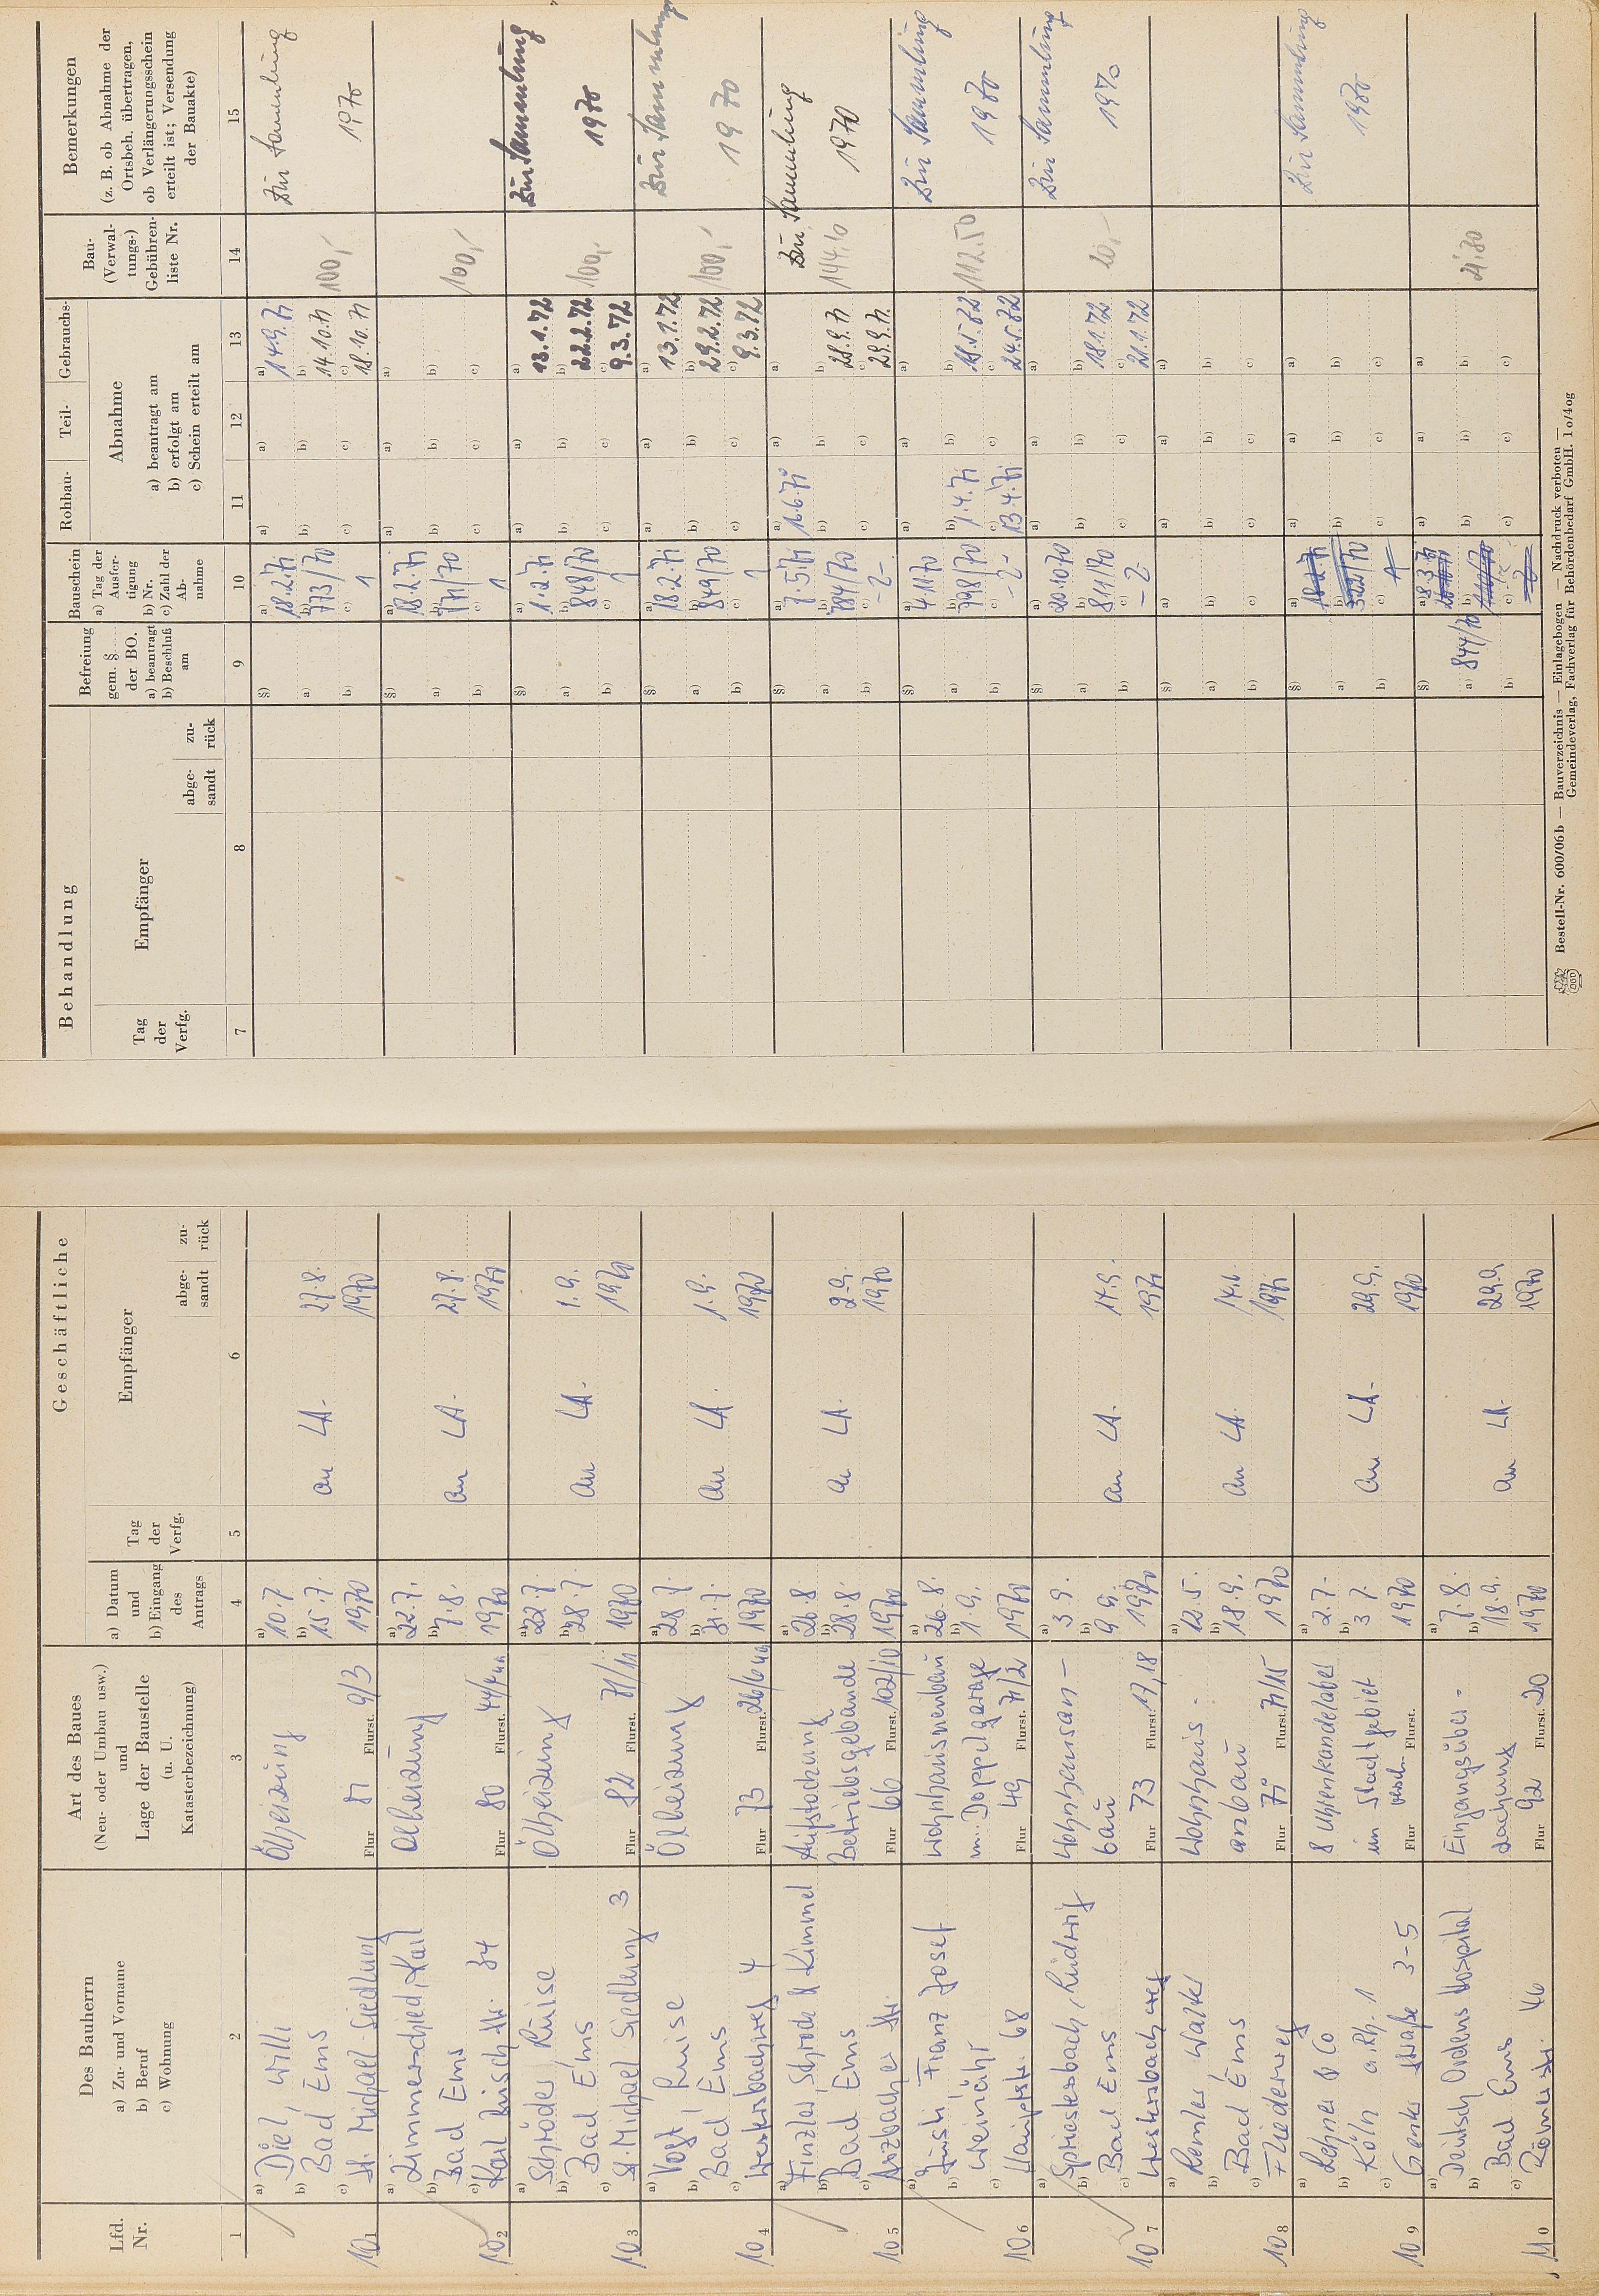 Geschäftliche
Lfd.
Nr.
Des Bauherrn
a) Zu- und Vorname
b) Beruf
c) Wohnung
Art des Baues
(Neu- oder Umbau usw.)
und
Lage der Baustelle
(u. U.
Katasterbezeichnung)
a) Datum
und
b) Eingang
des
Antrags
Tag
der
Verfg.
Empfänger
abge-
sandt
zu-
rück
1 2 3 4 5 6
101
a) Diel, Willi
b) Bad Ems
c) St. Michael-Siedlung
Ölheizung
Flur 81 Flurst. 9/3
a) 10.7.
b) 15.7.
1970
an LA.
27.8.
1970
102
a) Zimmerschied, Karl
b) Bad Ems
c) Karl Busch Str. 34
Ölheizung
Flur 80 Flurst.
a) 22.7.
b) 7.8.
1970
an LA.
27.8.
1970
103
a) Schröder, Luise
b) Bad Ems
c) St. Michael Siedlung 3
Ölheizung
Flur 82 Flurst. 71/11
a) 22.7.
b) 28.7.
1970
an LA.
1.9.
1970
104
a) Vogt, Luise
b) Bad Ems
c) Westersbachweg 4
Ölheizung
Flur 73 Flurst.
a) 28.7.
b) 31.7.
1970
an LA.
1.9.
1970
105
a) Finzler, Schrock & Kimmel
b) Bad Ems
c) Arzbacher Str.
Aufstockung
Betriebsgebäude
Flur 66 Flurst. 102/10
a) 26.8
b) 28.8.
1970
an LA.
2.9.
1970
106
a) Justi, Franz Josef
b) Weinähr
c) Hauptstr. 68
Wohnhausneubau
m. Doppelgarage
Flur 49 Flurst. 71/2
a) 26.8.
b) 1.9.
1970
107
a) Spriestersbach, Ludwig
b) Bad Ems
c) Westersbachweg
Wohnhausan-
bau
Flur 73 Flurst. 17,18
a) 3.9.
b) 9.9.
1970
an LA.
14.9.
1970
108
a) Remler, Walter
b) Bad Ems
c) Fliederweg
Wohnhaus-
anbau
Flur 71 Flurst. 71/15
a) 12.5.
b) 18.9.
1970
an LA.
1971
109
a) Lehner & Co
b) Köln a. Rh. 1
c) straße 3-5
8 Uhrenkandelaber
im Stadtgebiet
Flur versch. Flurst.
a) 2.7.
b) 3.7.
1970
an LA.
29.9.
1970
110
a) Deutsch Ordens Hospital
b) Bad Ems
c) Römerstr. 46
Eingangsüber-
dachung
Flur 92 Flurst. 20
a) 7.8.
b) 18.9.
1970
an LA.
29.9
1970
Behandlung
Tag
der
Verfg.
Empfänger
abge-
sandt
zu-
rück
Befreiung
gem. §......
der BO.
a) beantragt
b) Beschluß
am
Bauschein
a) Tag der
Ausfer-
tigung
b) Nr.
c) Zahl der
Ab-
nahme
Rohbau- Teil- Gebrauchs-
Abnahme
a) beantragt am
b) erfolgt am
c) Schein erteilt am
Bau-
(Verwal-
tungs-)
Gebühren-
liste Nr.
Bemerkungen
(z. B. ob Abnahme der
Ortsbeh. übertragen,
ob Verlängerungsschein
erteilt ist; Versendung
der Bauakte)
7 8 9 10 11 12 13 14 15
§) a) b)
a) 18.2.71
b) 773/70
c) 1
a) b) c)
a) b) c)
a) 14.9.71
b) 14.10.71
c) 18.10.71
100,-
Zur Sammlung
1970
§) a) b)
a) 18.2.71
b) 771/70
c) 1
a) b) c)
a) b) c)
a) b) c)
100,-
§) a) b)
a) 1.2.71
b) 848/70
c) 1
a) b) c)
a) b) c)
a) 13.1.72
b) 22.2.72
c) 9.3.72
100,-
Zur Sammlung
1970
§) a) b)
a) 18.2.71
b) 849/70
c) 1
a) b) c)
a) b) c)
a) 13.1.72
b) 29.2.72
c) 9.3.72
100,-
Zur Sammlung
1970
§) a) b)
a) 7.5.71
b) 784/70
c) -2-
a) 16.6.71
b) c)
a) b) c)
a)
b) 28.9.71
c) 29.9.71
144,10
Zur Sammlung
1970
§) a) b)
a) 4.11.70
b) 798/70
c) -2-
a)
b) 7.4.71
c) 13.4.71
a) b) c)
a)
b) 18.5.72
c) 24.5.72
112,50
Zur Sammlung
1970
§) a) b)
a) 20.10.70
b) 811/70
c) -2-
a) b) c)
a) b) c)
a)
b) 18.1.72
c) 21.1.72
20,-
Zur Sammlung
1970
§) a) b)
a) b) c)
a) b) c)
a) b) c)
a) b) c)
§) a) b)
a) 18.2.71
b) 322/70
c) 1
a) b) c)
a) b) c)
a) b) c)
Zur Sammlung
1970
§)
a) 844/70
b)
a) 8.3.71
b)
c)
a) b) c)
a) b) c)
a) b) c)
21,30
Bestell-Nr. 600/06 b — Bauverzeichnis — Einlagebogen — Nachdruck verboten —
Gemeindeverlag, Fachverlag für Behördenbedarf GmbH. 1 o/4 og